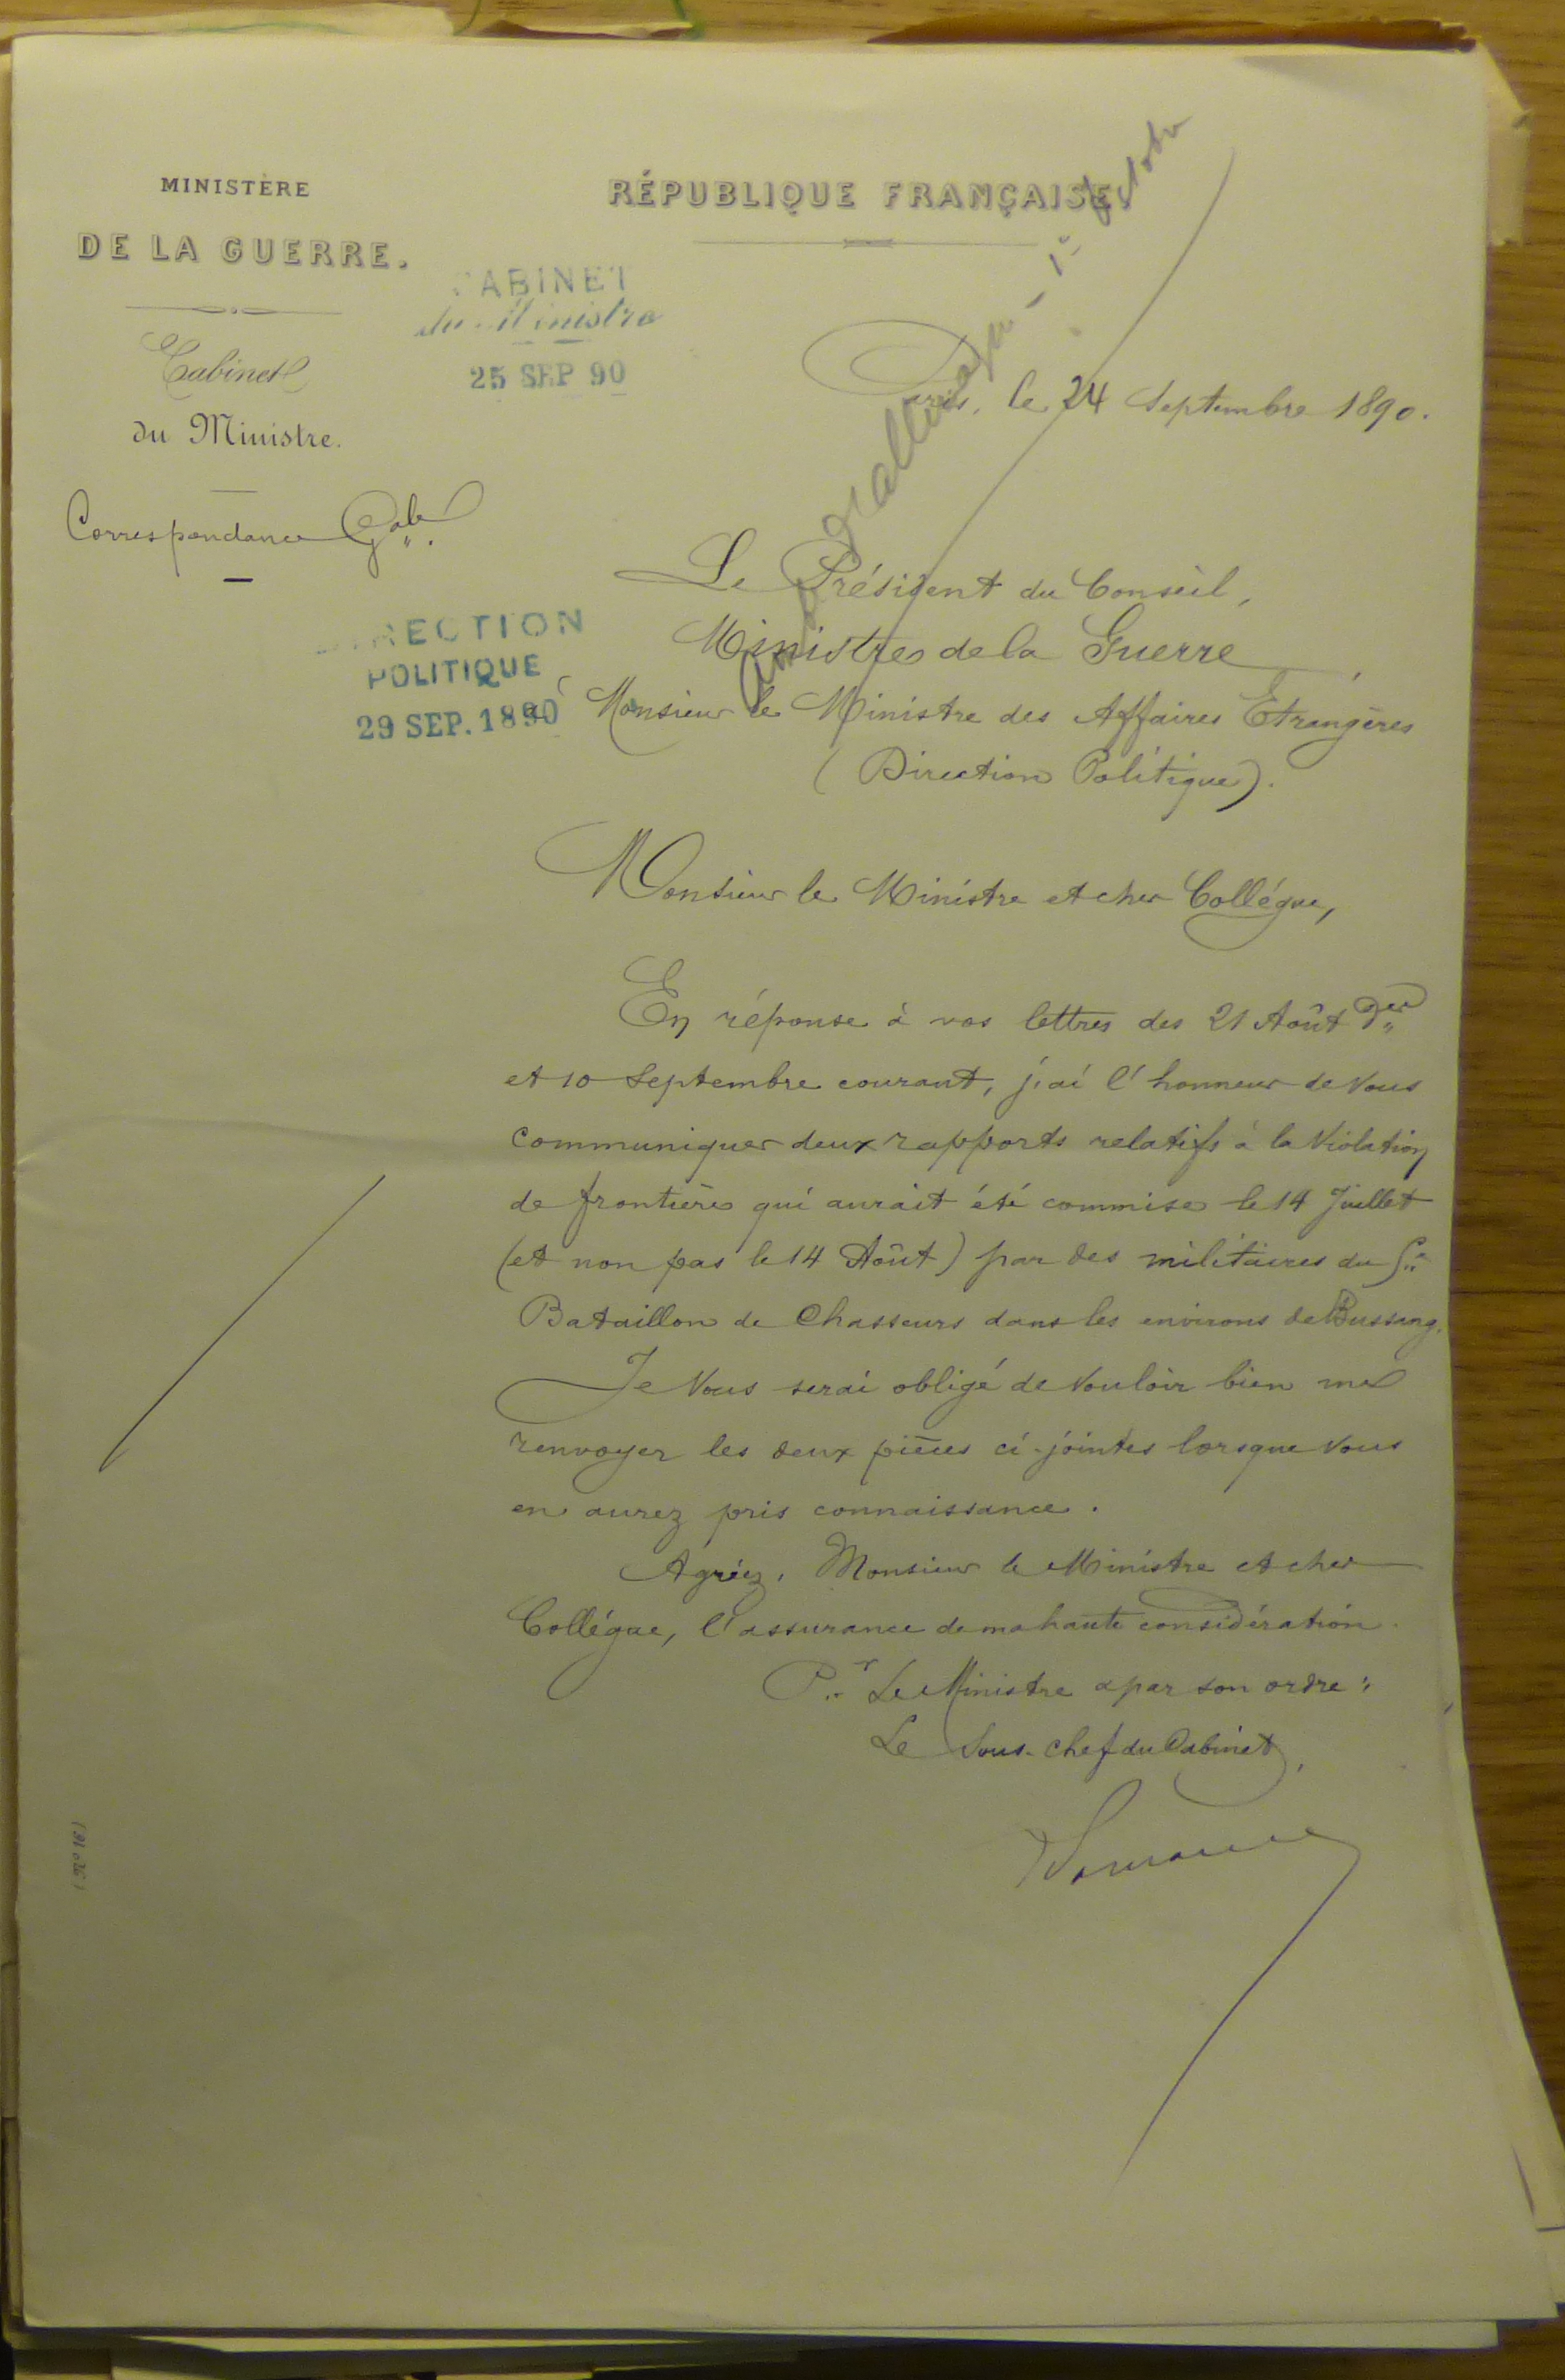 MINISTÈRE
DE LA GUERRE.
Cabinet
du Ministre.
Correspondance Gale.
RÉPUBLIQUE FRANÇAISE
CABINET
du Ministre
25 SEP 90
Paris, le 24 Septembre 1890.
DIRECTION
POLITIQUE
29 SEP. 1890
Le Président du Conseil,
Ministre de la Guerre,
à Monsieur le Ministre des Affaires Etrangères
(Direction Politique).
Monsieur le Ministre et cher Collégue,
En réponse à vos lettres des 21 Août der
et 10 Septembre courant, j'ai l'honneur de Vous
communiquer deux rapports relatifs à la Violation
de frontière qui aurait été commise le 14 Juillet
(et non pas le 14 Août) par des militaires du 5e
Bataillon de Chasseurs dans les environs de Bussang.
Je Vous serai obligé de Vouloir bien me
renvoyer les deux pièces ci-jointes lorsque Vous
en aurez pris connaissance.
Agréez, Monsieur le Ministre et cher
Collégue, l'assurance de ma haute considération.
Pr Le Ministre & par son ordre:
Le Sous-chef du Cabinet,
(No 16)